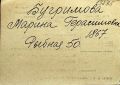 Бугримова
Марина Герасимовна
1867
Рыбная 50